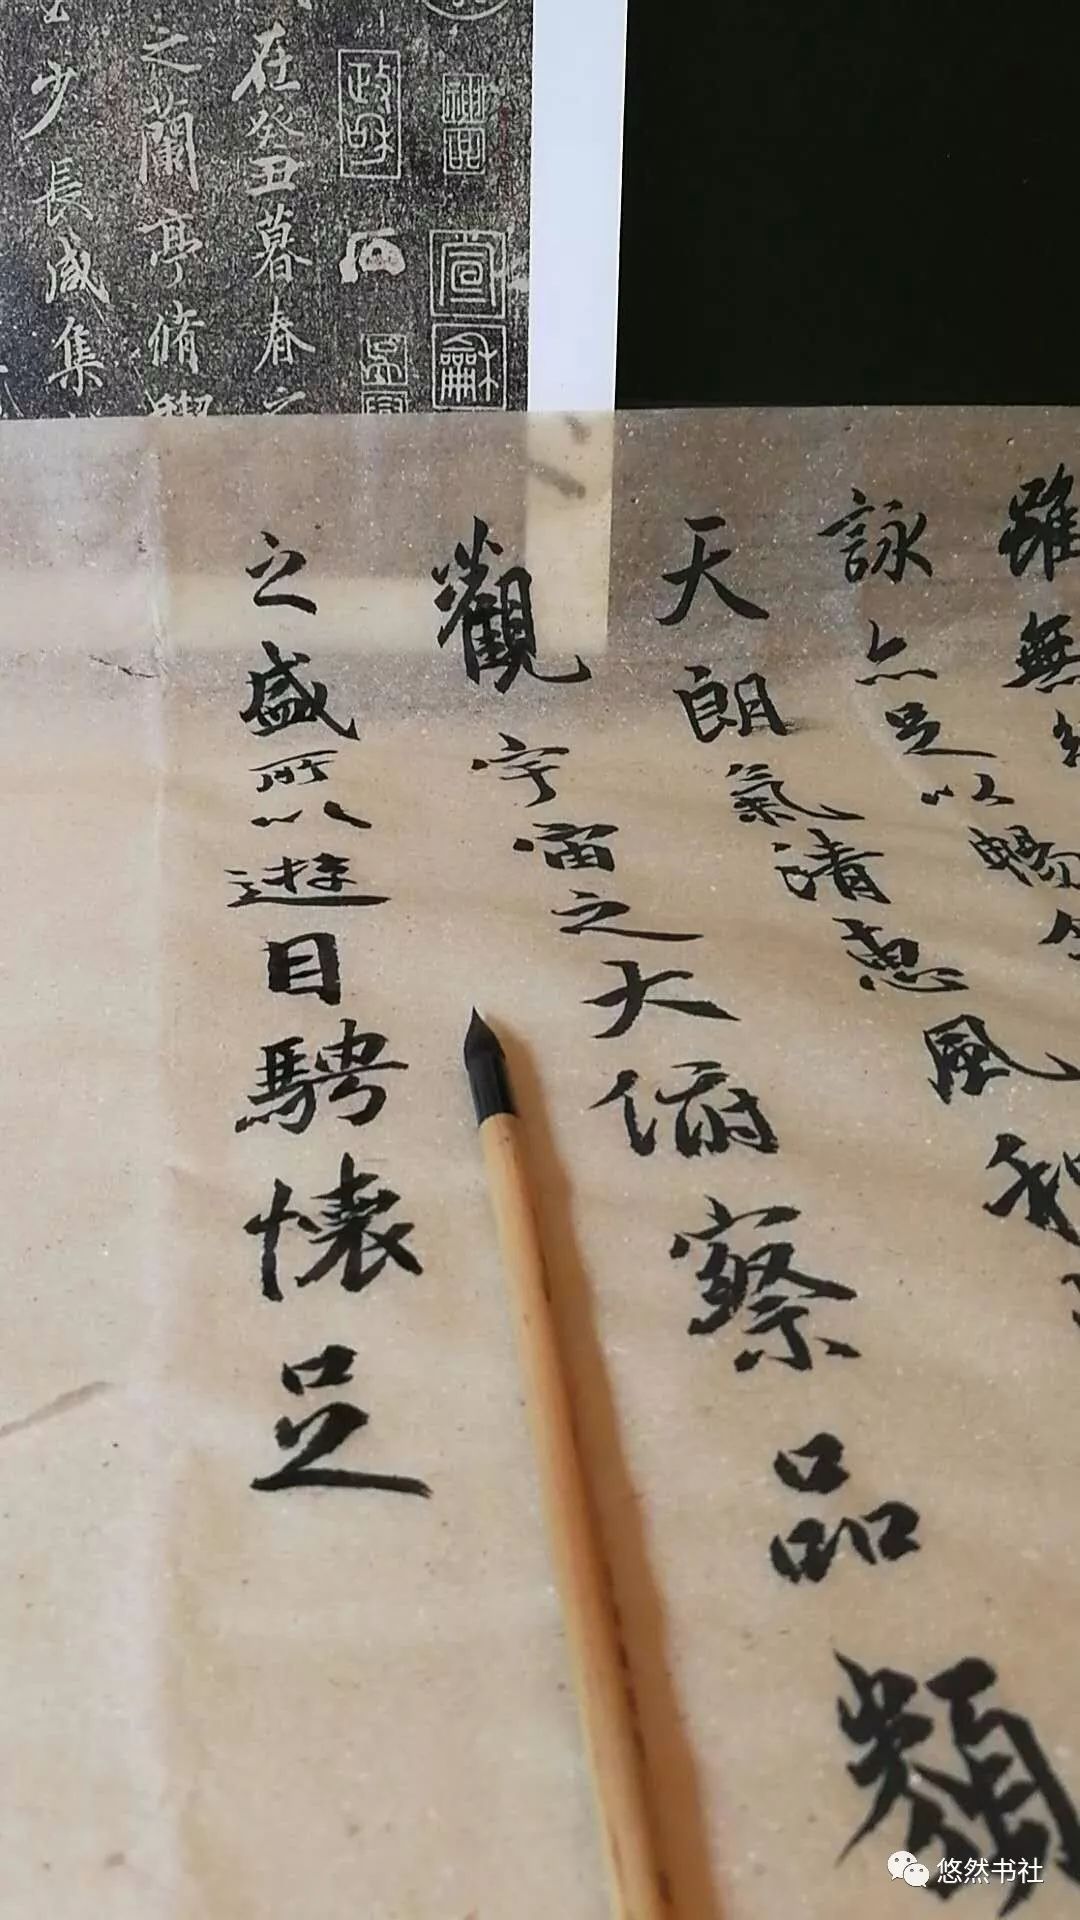 在癸丑暮春
之蘭亭脩禊
少長咸集
雖無絲
詠亦足以暢
天朗氣清惠風和
觀宇宙之大俯察品類
之盛所以遊目騁懷足
政和
宣龢
悠然书社